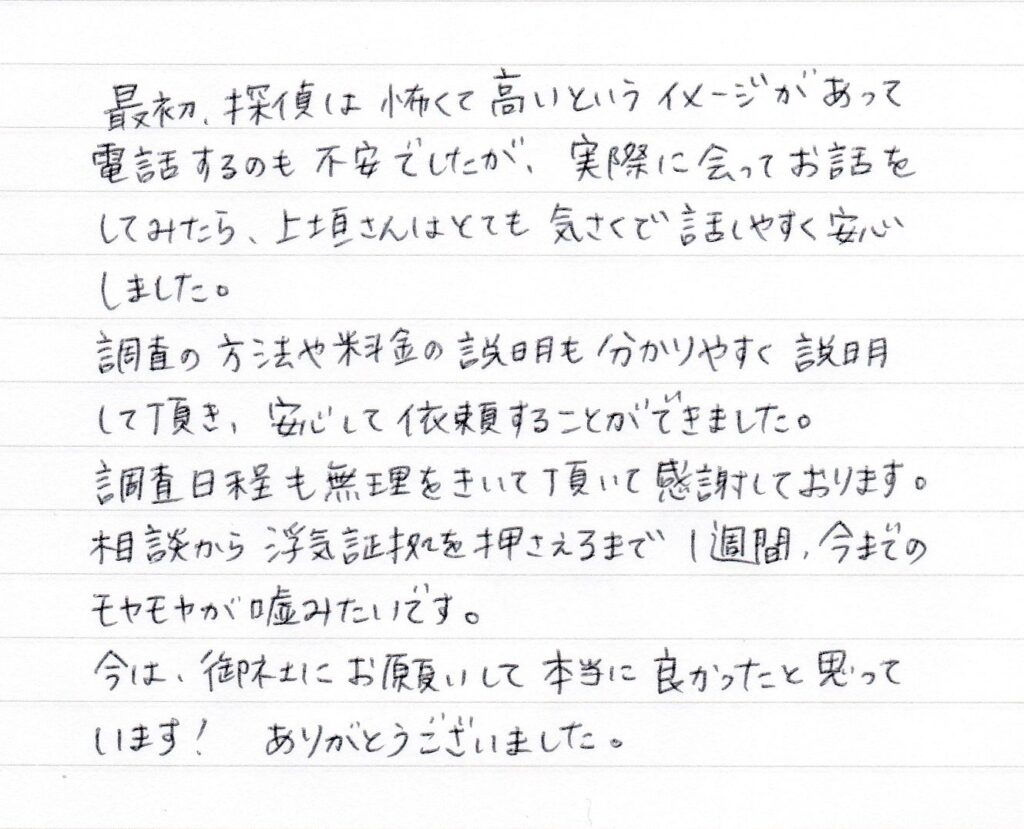 最初、探偵は怖くて高いというイメージがあって
電話するのも不安でしたが、実際に会ってお話を
してみたら、上垣さんはとても気さくで話しやすく安心
しました。
調査の方法や料金の説明も分かりやすく説明
して頂き、安心して依頼することができました。
調査日程も無理をきいて頂いて感謝しております。
相談から浮気証拠を押さえるまで1週間、今までの
モヤモヤが嘘みたいです。
今は、御社にお願いして本当に良かったと思って
います! ありがとうございました。